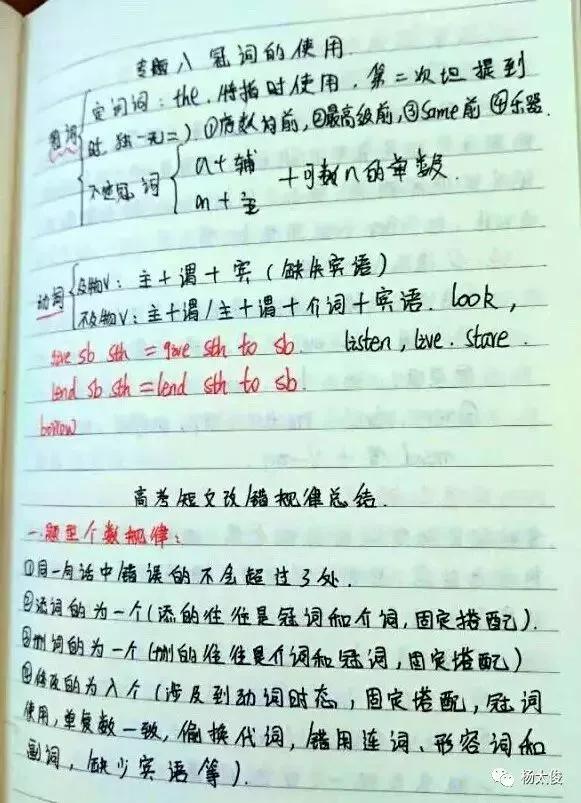 专题八 冠词的使用
冠词 定冠词:the.特指时使用.第二次坦提到
时.独一无二)①序数词前,②最高级前,③Same前 ④乐器.
不定冠词 a+辅
an+主
+可数n的单数.
动词 及物V:主+谓+宾(缺失宾语)
不及物V:主+谓/主+谓+介词+宾语. look,
give sb sth = gave sth to sb. listen, live. stare.
lend sb sth = lend sth to sb.
borrow
高考短文改错规律总结.
一.题型个数规律:
①同一句话中错误的不会超过3处.
②添词的为一个(添的往往是冠词和介词,固定搭配).
③删词的为一个(删的往往是介词和冠词,固定搭配)
④修改的为八个(涉及到动词时态,固定搭配,冠词
使用,单复数一致,偷换代词,错用连词、形容词和
副词,缺少宾语等).
杨太俊